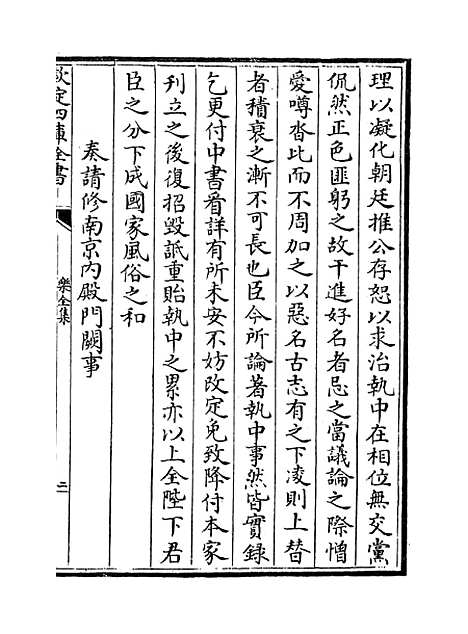 理以凝化朝廷推公存恕以求治執中在相位無交黨
侃然正色匪躬之故干進好名者忌之當議論之際憎
愛噂沓比而不周加之以惡名古志有之下凌則上替
者積衰之漸不可長也臣今所論著執中事然皆實録
乞更付中書看詳有所未安不妨改定免致降付本家
刋立之後復招毀詆重貽執中之累亦以上全陛下君
臣之分下成國家風俗之和
奏請修南京内殿門闕事
欽定四庫全書
樂全集
二